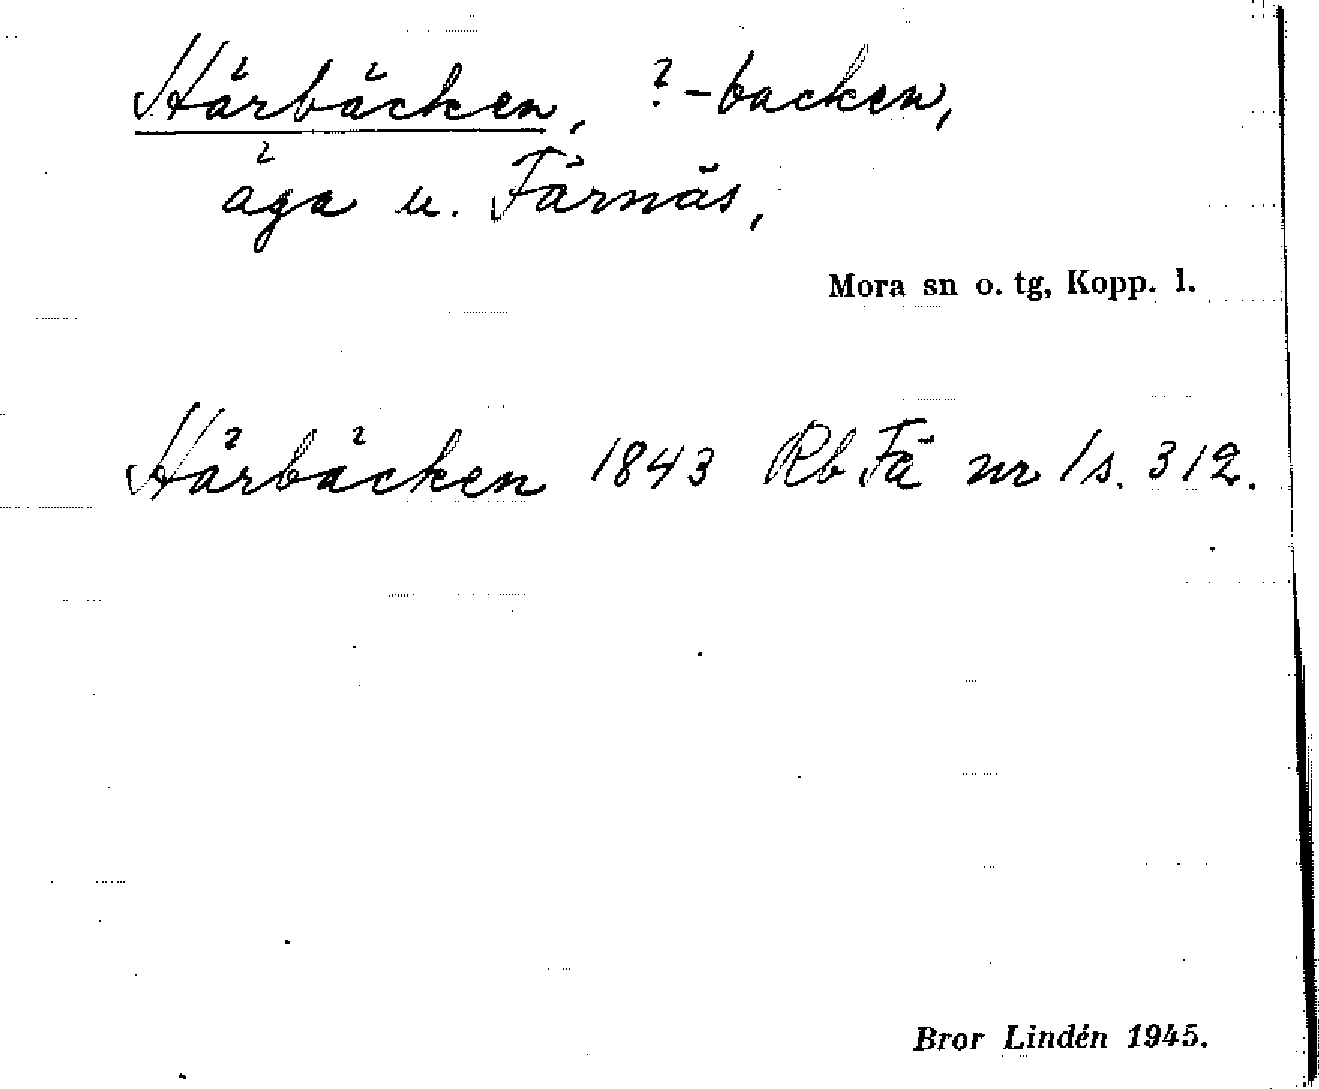 Härbäcken, ?-backen,
äga u. Färnäs,
Mora sn o. tg, Kopp. l.
Härbäcken 1843 Rb Fä nr 1 s. 312.
Bror Lindén 1945.